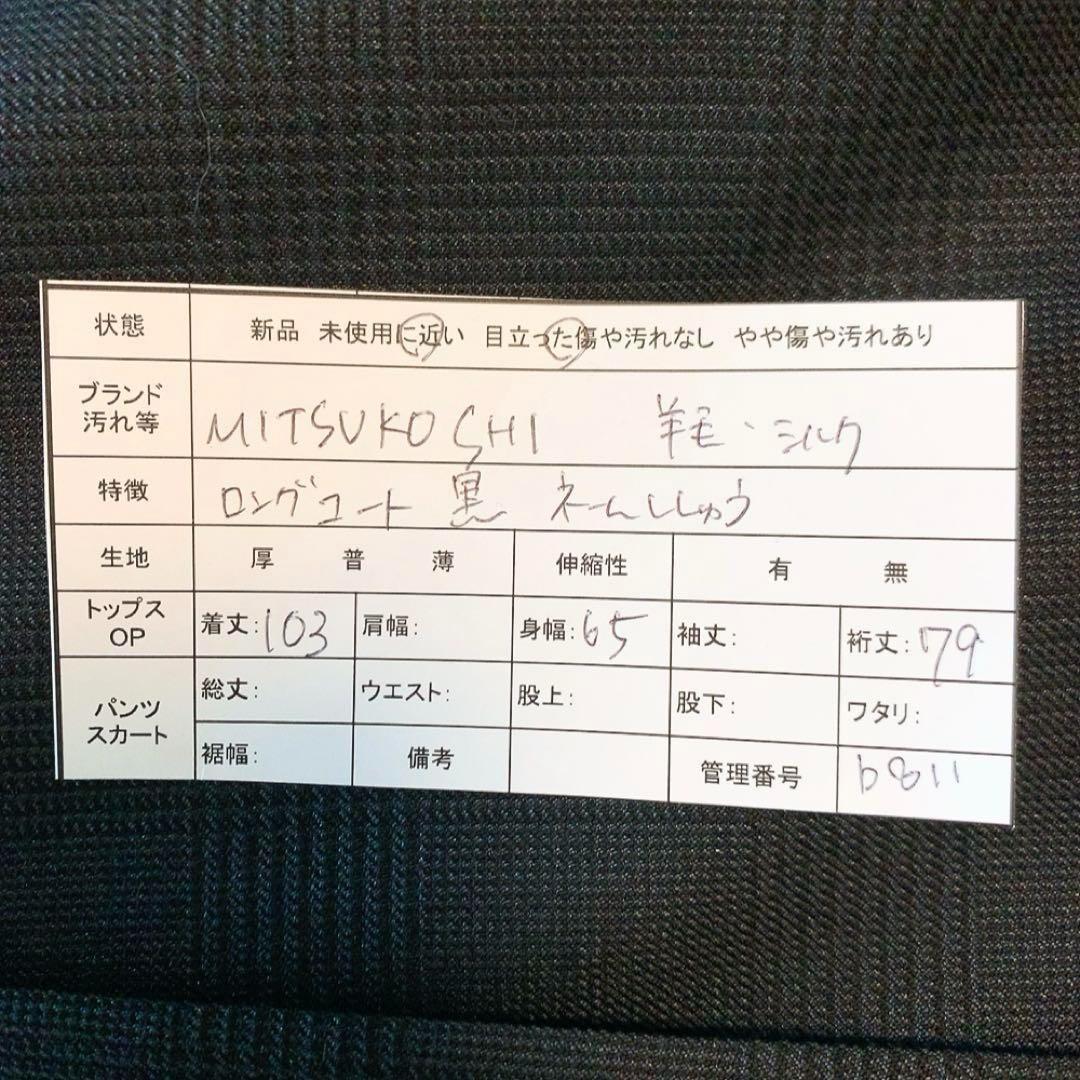 状態 新品 未使用に近い 目立った傷や汚れなし やや傷や汚れあり
ブランド
汚れ等 MITSUKOSHI 羊毛・シルク
特徴 ロングコート 黒 ネームししゅう
生地 厚 普 薄 伸縮性 有 無
トップス
OP 着丈:103 肩幅: 身幅:65 袖丈: 裄丈:79
パンツ
スカート 総丈: ウエスト: 股上: 股下: ワタリ:
裾幅: 備考 管理番号 b811